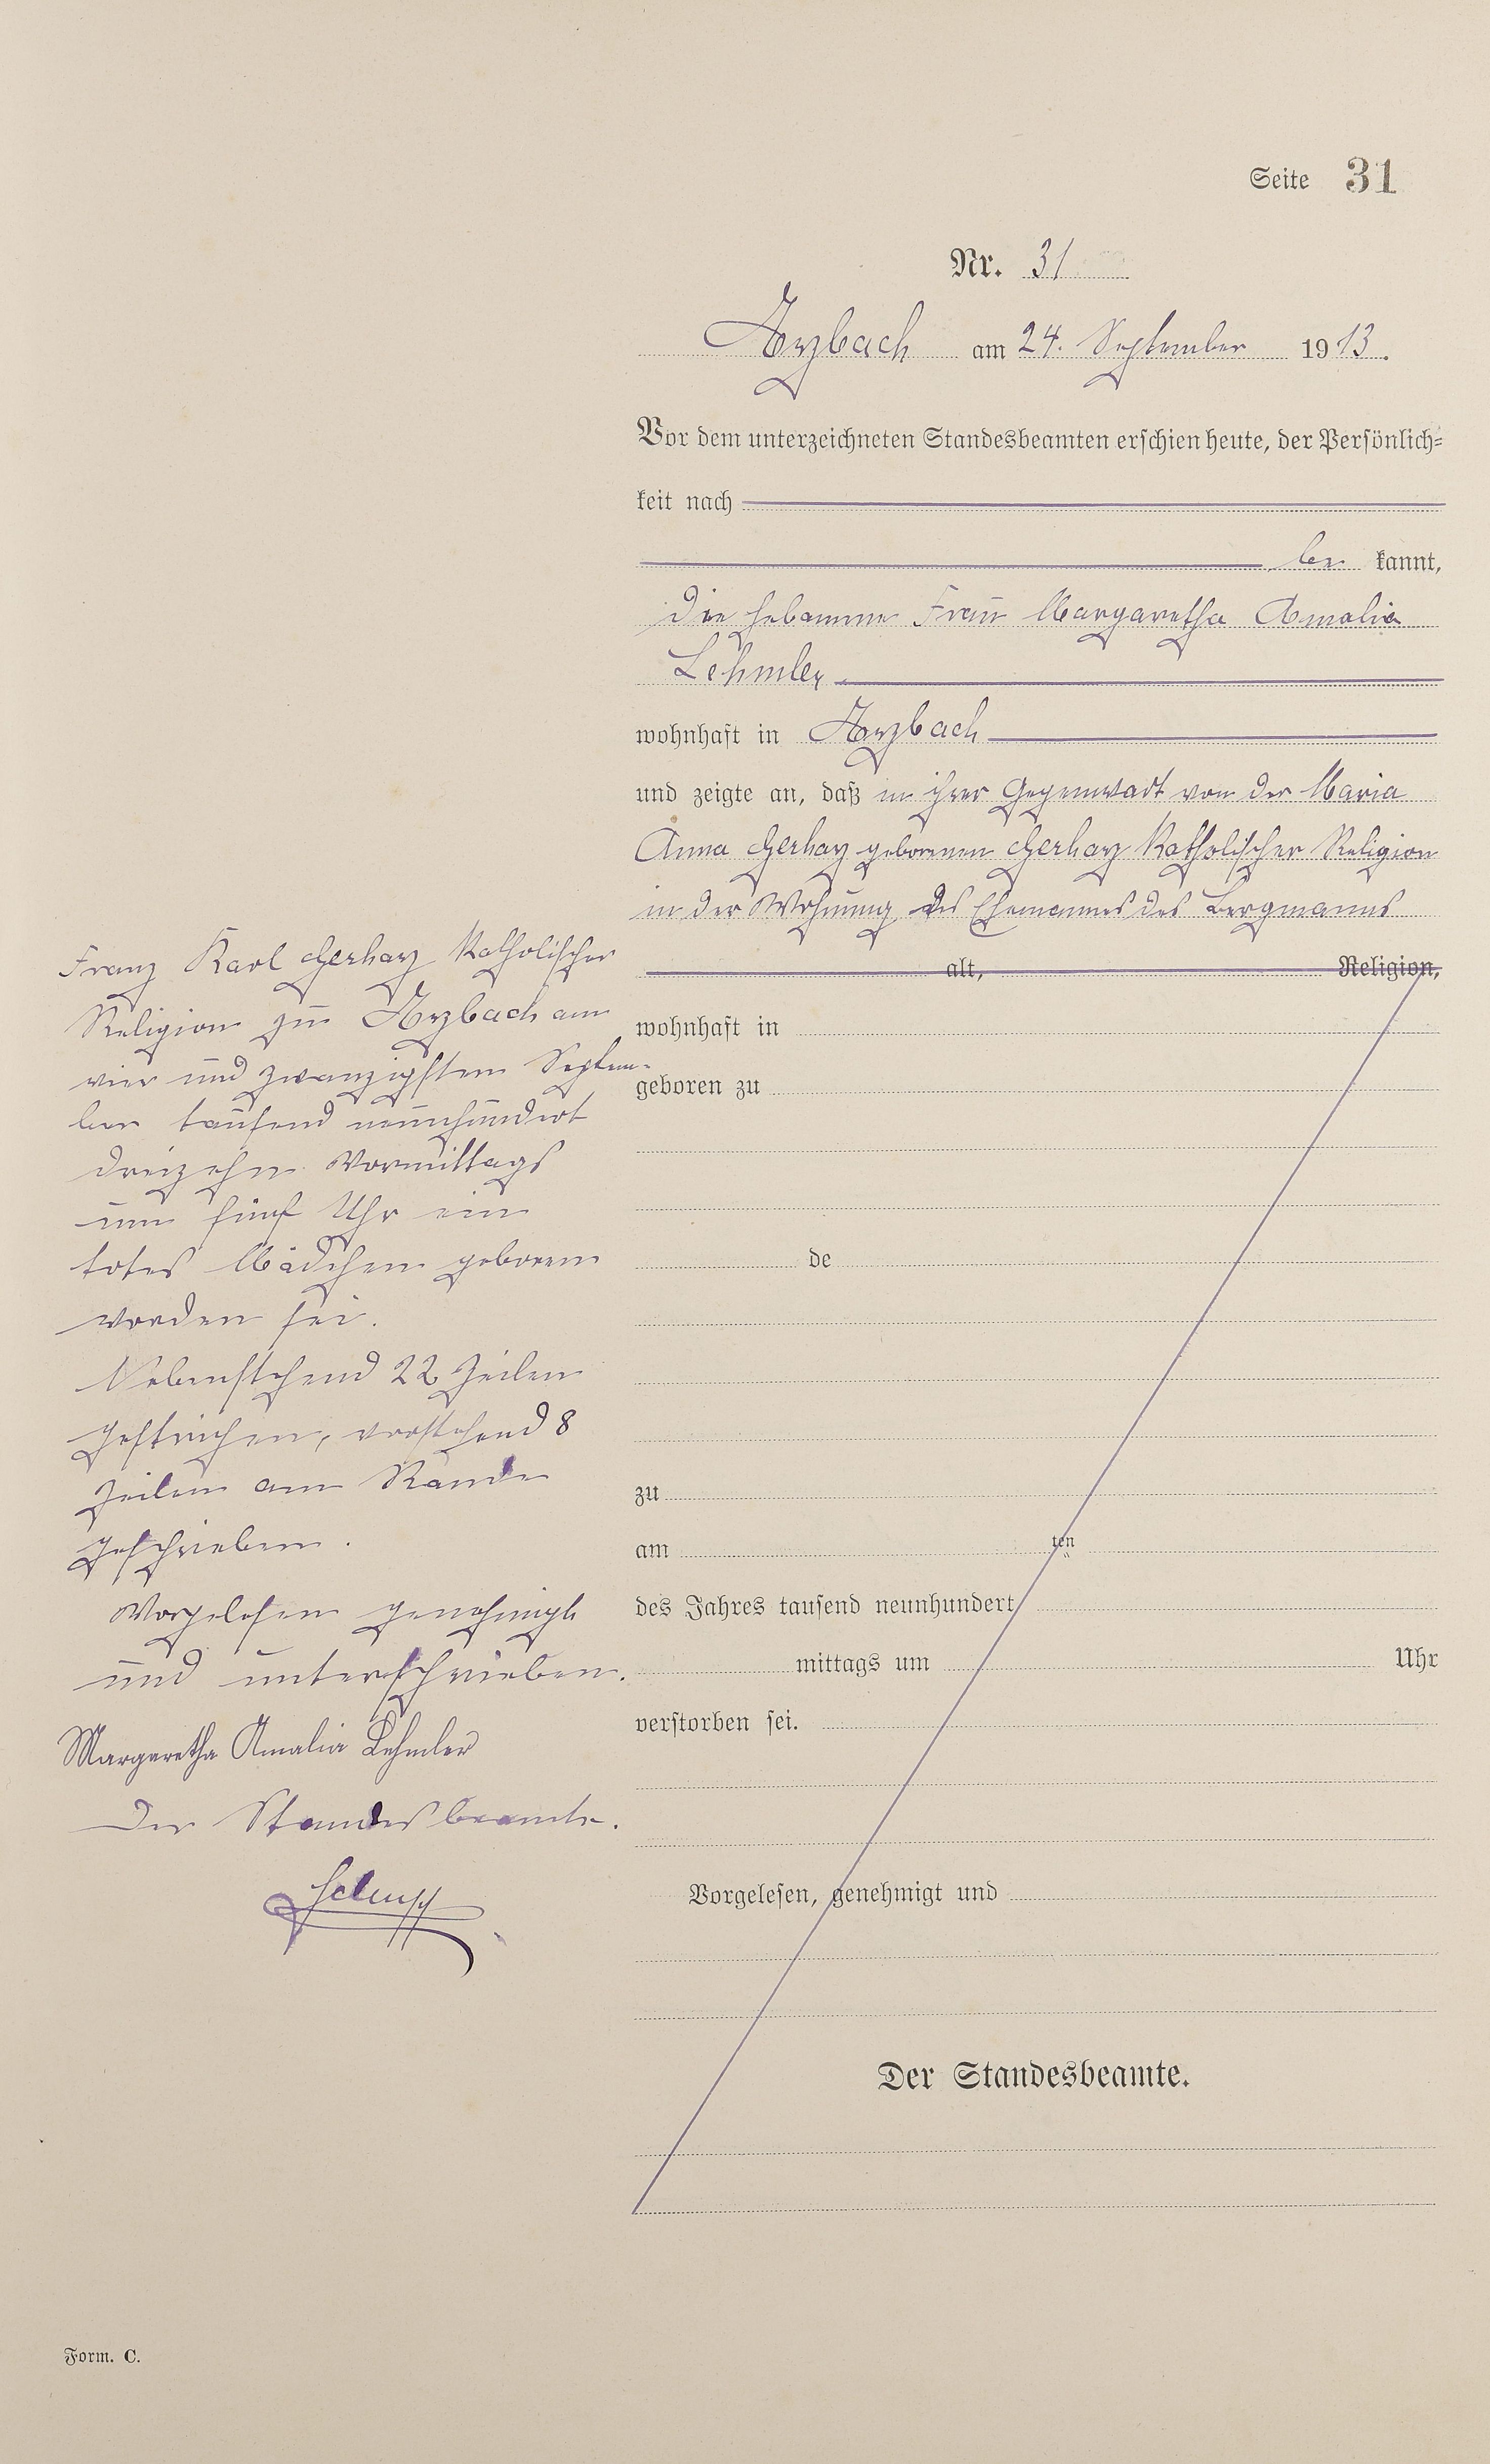 Seite 31
Nr. 31
Arzbach am 24. September 1913.
Vor dem unterzeichneten Standesbeamten erschien heute, der Persönlich-
keit nach
be kannt,
die Hebamme Frau Margaretha Amalia
Lehmler
wohnhaft in Arzbach
und zeigte an, daß in ihrer Gegenwart von der Maria
Anna Gerharz geborenen Gerharz Katholischer Religion
in der Wohnung des Ehemannes des Bergmanns
alt, Religion,
Franz Karl Gerharz Katholischer
Religion zu Arzbach am
vier und zwanzigsten Septem-
ber tausend neunhundert
dreizehn Vormittags
um fünf Uhr ein
totes Mädchen geboren
worden sei.
Nebenstehend 22 Zeilen
gestrichen, vorstehend 8
Zeilen am Rande
geschrieben.
Vorgelesen genehmigt
und unterschrieben.
Margaretha Amalia Lehmler
Der Standesbeamte.
wohnhaft in
geboren zu
de
zu
am ten
des Jahres tausend neunhundert
mittags um Uhr
verstorben sei.
Vorgelesen, genehmigt und
Der Standesbeamte.
Form. C.